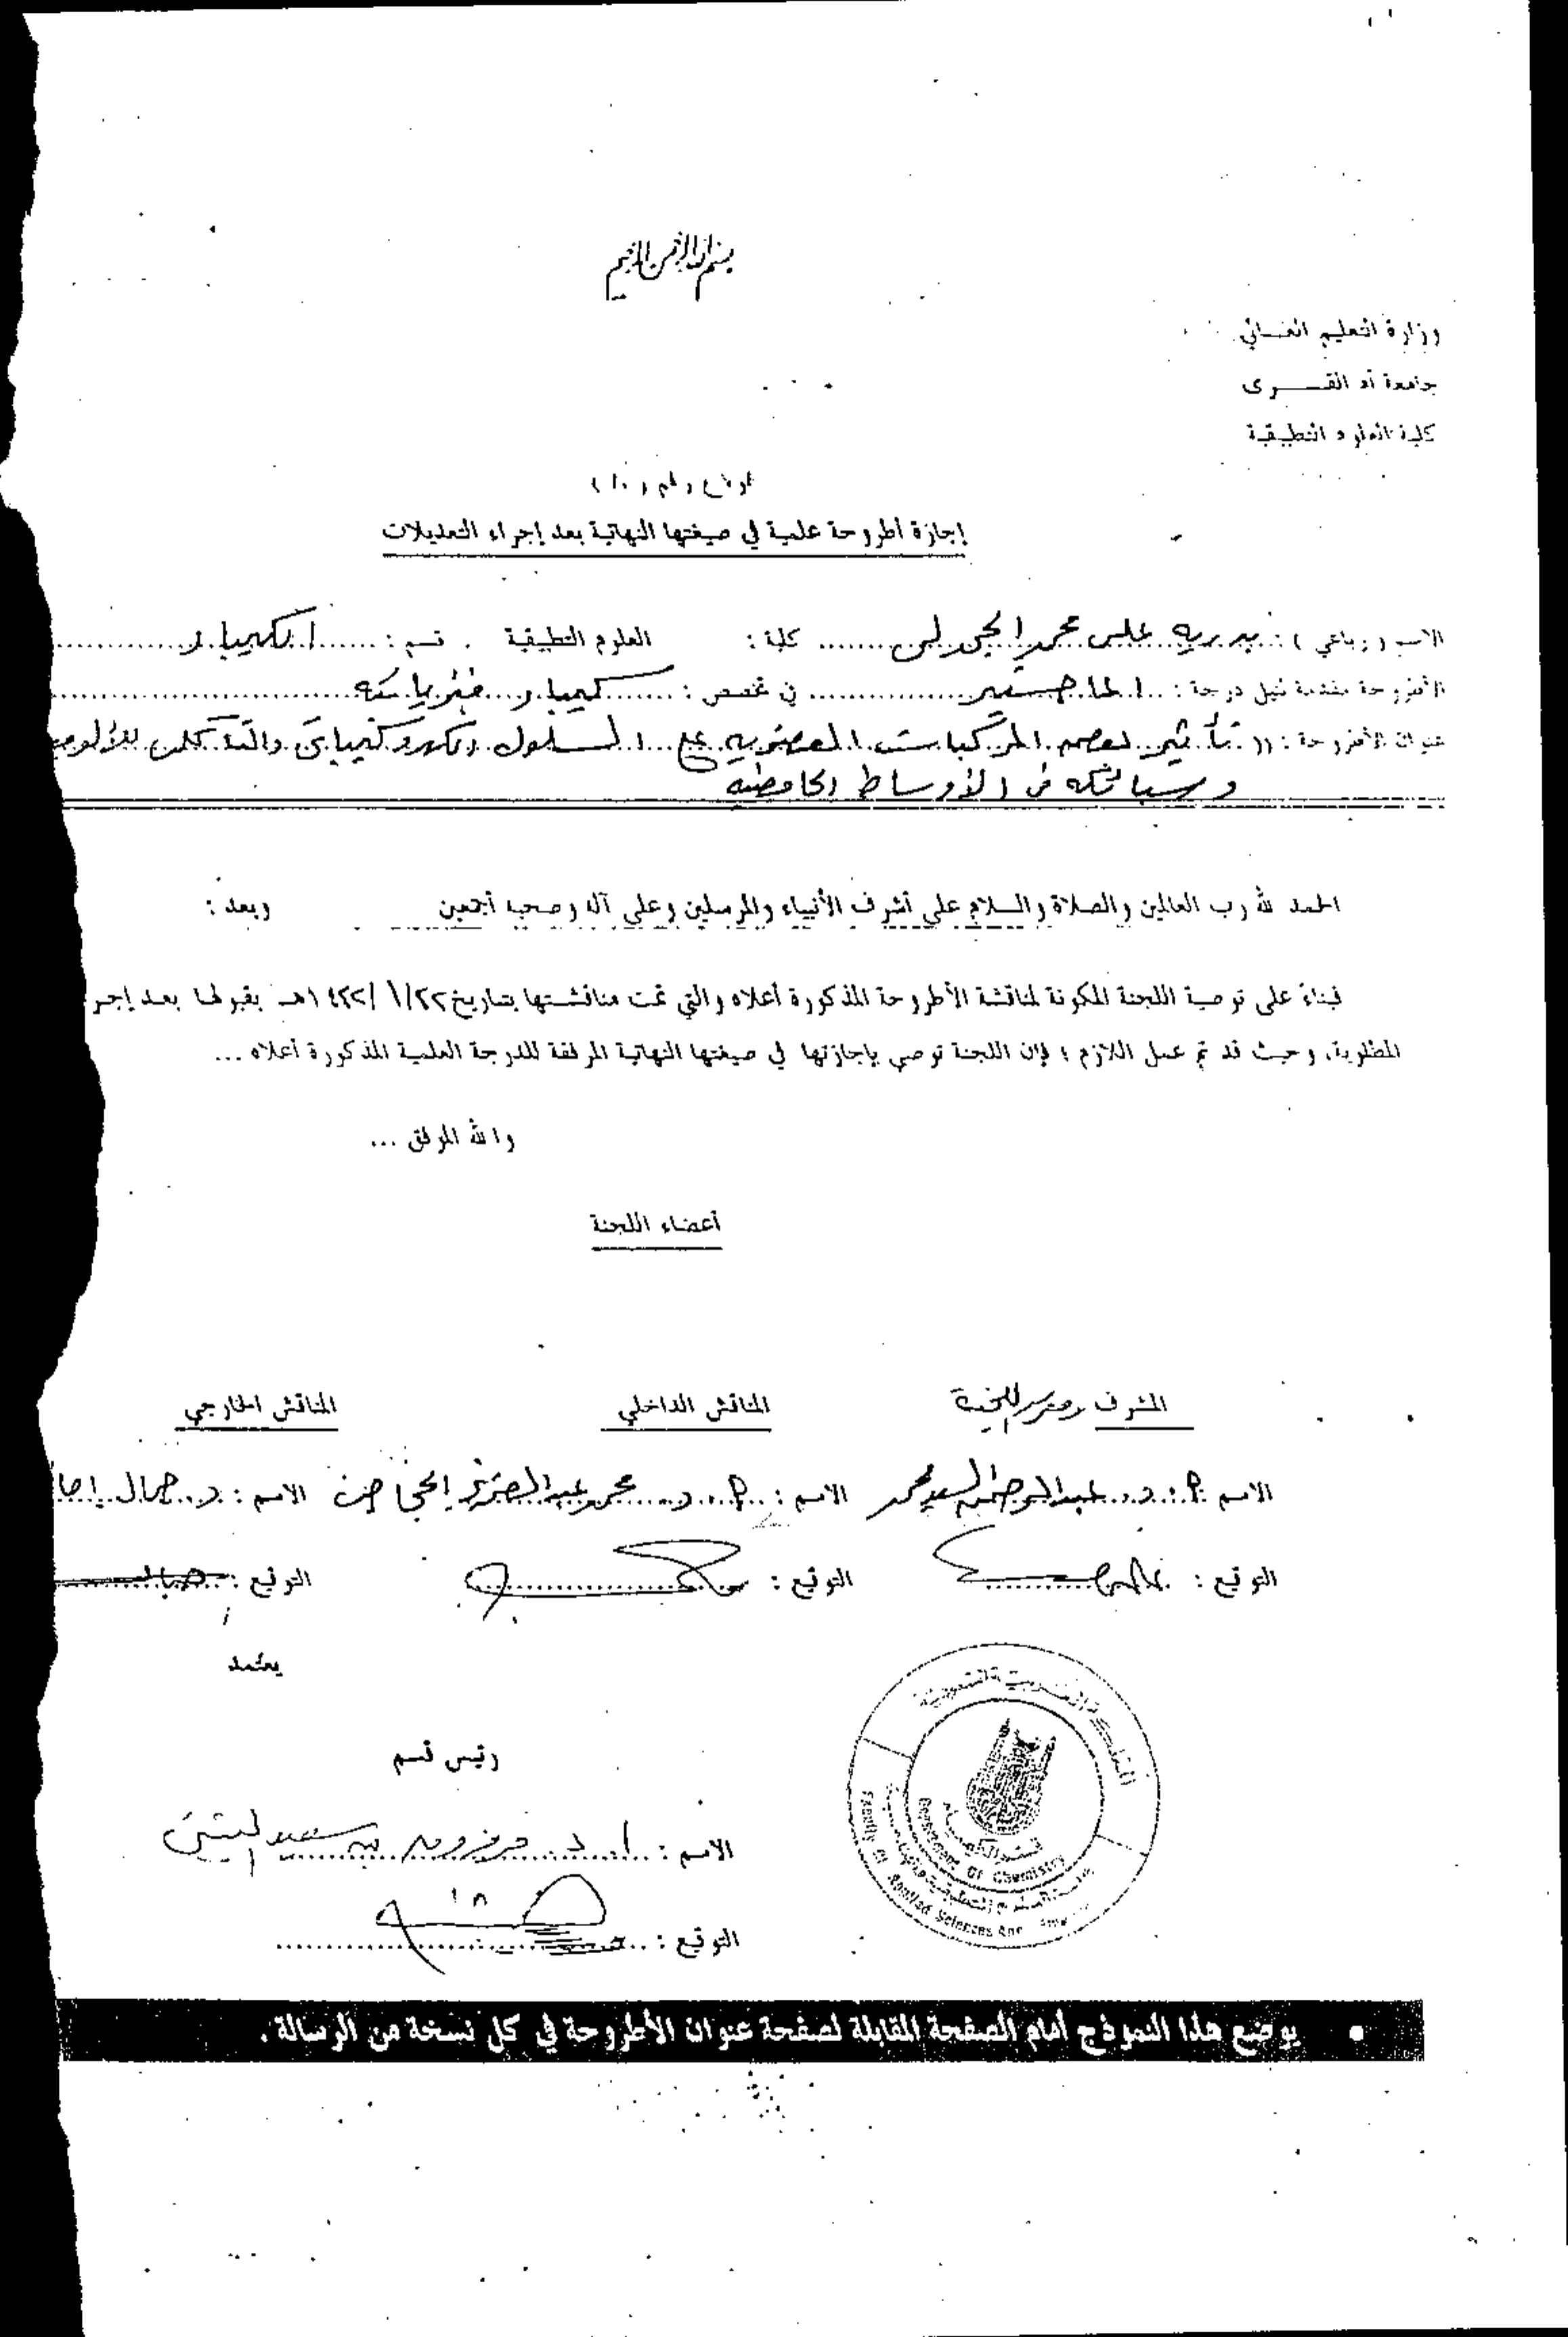 بسم الله الرحمن الرحيم
وزارة التعليم العالي
جامعة أم القــــرى
كلية العلوم التطبيقية
إجازة أطروحة علمية في صيغتها النهائية بعد إجراء التعديلات
الاسم (رباعي) : بدرية علي محمد كلية : العلوم التطبيقية . قسم : الكيمياء
الأطروحة مقدمة لنيل درجة : الماجستير في تخصص : كيمياء فيزيائية
عنوان الأطروحة : (( تأثير بعض المركبات العضوية على السلول الكهروكيميائي والتآكل للألوم
وسبائكه في الأوساط الحامضية
الحمد لله رب العالمين والصلاة والسلام على أشرف الأنبياء والمرسلين وعلى آله وصحبه أجمعين وبعد :
فبناءً على توصية اللجنة المكونة لمناقشة الأطروحة المذكورة أعلاه والتي تمت مناقشتها بتاريخ ٢٢/١/١٤٢٢هـ بقبولها بعد إجر
المطلوبة، وحيث قد تم عمل اللازم ؛ فإن اللجنة توصي بإجازتها في صيغتها النهائية المرفقة للدرجة العلمية المذكورة أعلاه ...
والله الموفق ...
أعضاء اللجنة
المشرف ومقرر اللجنة المناقش الداخلي المناقش الخارجي
الاسم : أ.د. عبدالرحمن السيد محمد الاسم : أ.د. محمد عبدالعزيز الاسم : د. جمال
التوقيع : التوقيع : التوقيع :
يعتمد
رئيس قسم
الاسم : أ.د. بن سعيد
التوقيع :
المملكة العربية السعودية
قسم الكيمياء
Department Of Chemistry
Faculty Of Applied Sciences
• يوضع هذا النموذج أمام الصفحة المقابلة لصفحة عنوان الأطروحة في كل نسخة من الرسالة .